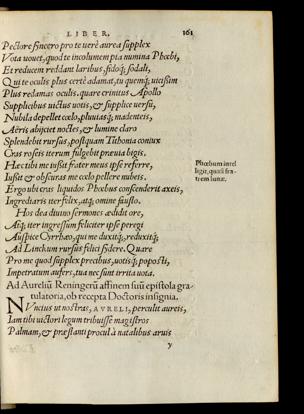 LIBER. 161
Pectore syncero pro te uerè aurea supplex
Vota uouet, quod te incolumem pia numina Phœbi,
Et reducem reddant laribus, fidoq; sodali,
Qui te oculis plus certè adamat, tu quemq; uicißim
Plus redamas oculis. quare crinitus Apollo
Supplicibus uictus uotis, & supplice uersu,
Nubila depellet cœlo, pluuiasq; madenteis,
Aëris abijciet noctes, & lumine claro
Splendebit rursus, postquam Tithonia coniux
Cras roseis iterum fulgebit præuia bigis.
Hæc tibi me iußit frater meus ipse referre,
Iußit & obscuras me cœlo pellere nubeis.
Ergo ubi cras liquidos Phœbus conscenderit axeis,
Ingrediaris iter felix, atq; omine fausto.
Hos dea diuino sermones ædidit ore,
Atq; iter ingressum feliciter ipse peregi
Auspice Cyrrhæo, qui me duxitq; reduxitq;
Ad Lincum rursus felici sidere. Quare
Pro me quod supplex precibus, uotisq; poposti,
Impetratum aufers, tua nec sunt irrita uota.
Phœbum intel
ligit, quasi fra-
trem lunæ.
Ad Aureliũ Reningerũ affinem suũ epistola gra-
tulatoria, ob recepta Doctoris insignia.
NVncius ut nostras, AVRELI, perculit aureis,
Iam tibi uictori legum tribuisse magistros
Palmam, & præstanti procul à natalibus aruis
y